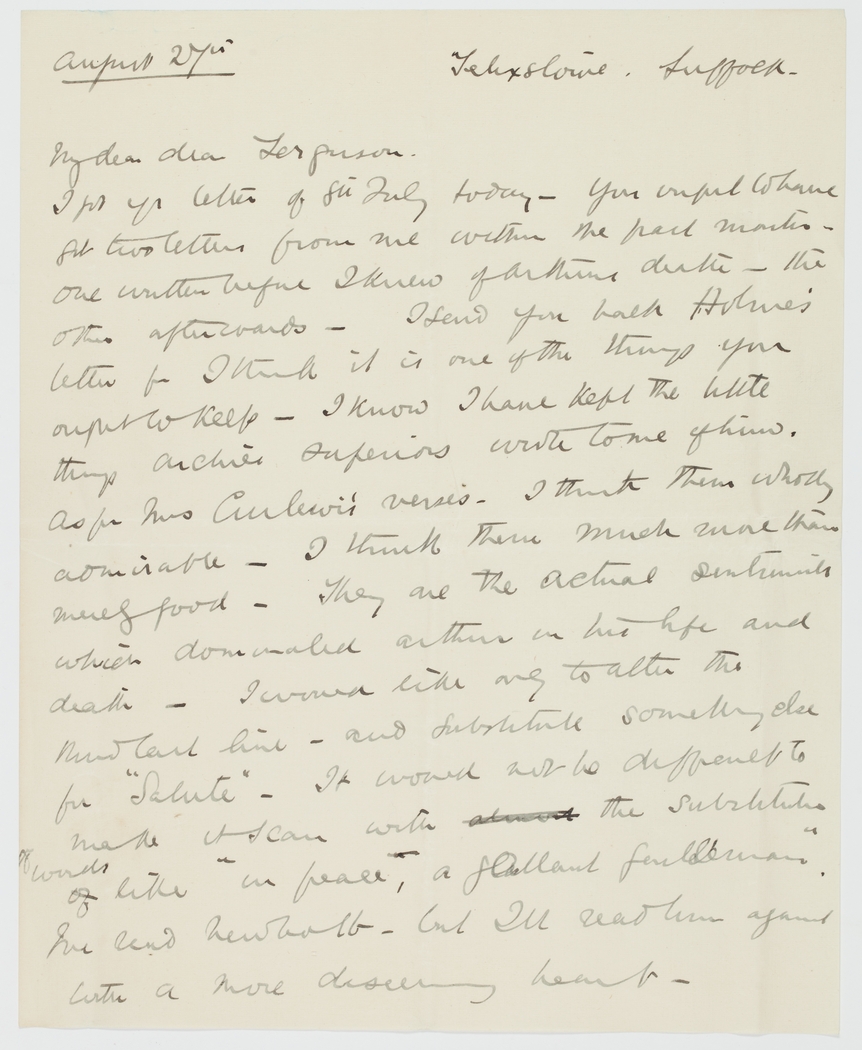 August 27th
Felixstowe. Suffolk-
My dear dear Ferguson.
I got yr letter of 8th July today- You ought to have
got two letters from me within the past months-
one written before I knew of Arthurs death - the
other afterwards - I send you back Holme's
letter for I think it is one of the things you
ought to keep - I know I have kept the little
things Archies superiors wrote to me of him.
As for Mrs Curlewis's verses- I think them wholly
admirable - I think them much more than
merely good - They are the actual sentiments
which dominated Arthur in his life and
death - I would like only to alter the
last line - and substitute something else
for "Salute" - It would not be difficult to
make it scan with almost the substitution
of words
of like "in peace", a gallant gentleman".
I've read Newbolt - but I'll read him again
with a more discerning heart -